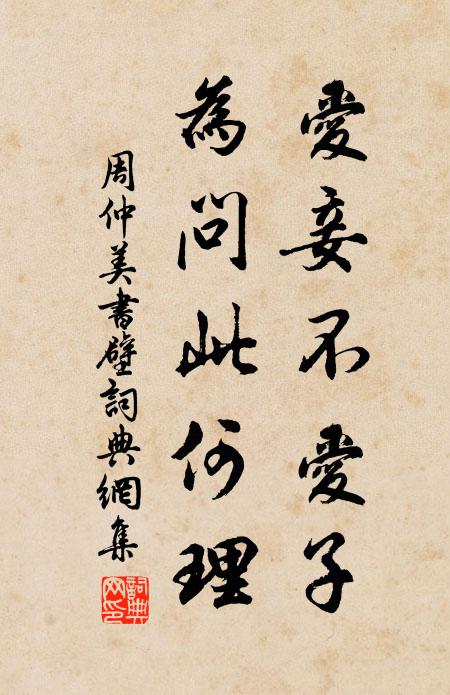 愛妾不愛子
為問此何理
周仲美書壁詞典網集
詞典網印